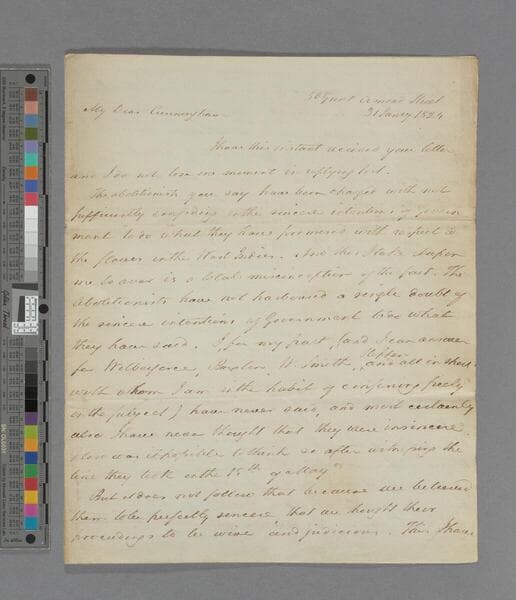 50 Great Ormond Street
31 Jany 1824
My Dear Cunningham
I have this instant received your letter
and I do not lose a moment in replying to it.
The abolitionists you say have been charged with not
sufficiently confiding in the sincere intentions of Govern
ment to do what they have promised with respect to
the slaves in the West Indies. And this State
me to aver is a total misconception of the fact. The
abolitionists have not harboured a single doubt of
the sincere intentions of Government to do what
they have said. I for my part (and I can answer
for Wilberforce, Buxton, W. Smith, and all in short
with whom I am in the habit of conferring freely
on the subject) have never said, and most certainly
also I have never thought that they were insincere.
How was it possible to think so after witnessing the
line they took on the 15th of May?
But it does not follow that because we believed
them to be perfectly sincere that we thought their
proceedings to be wise and judicious. This I have